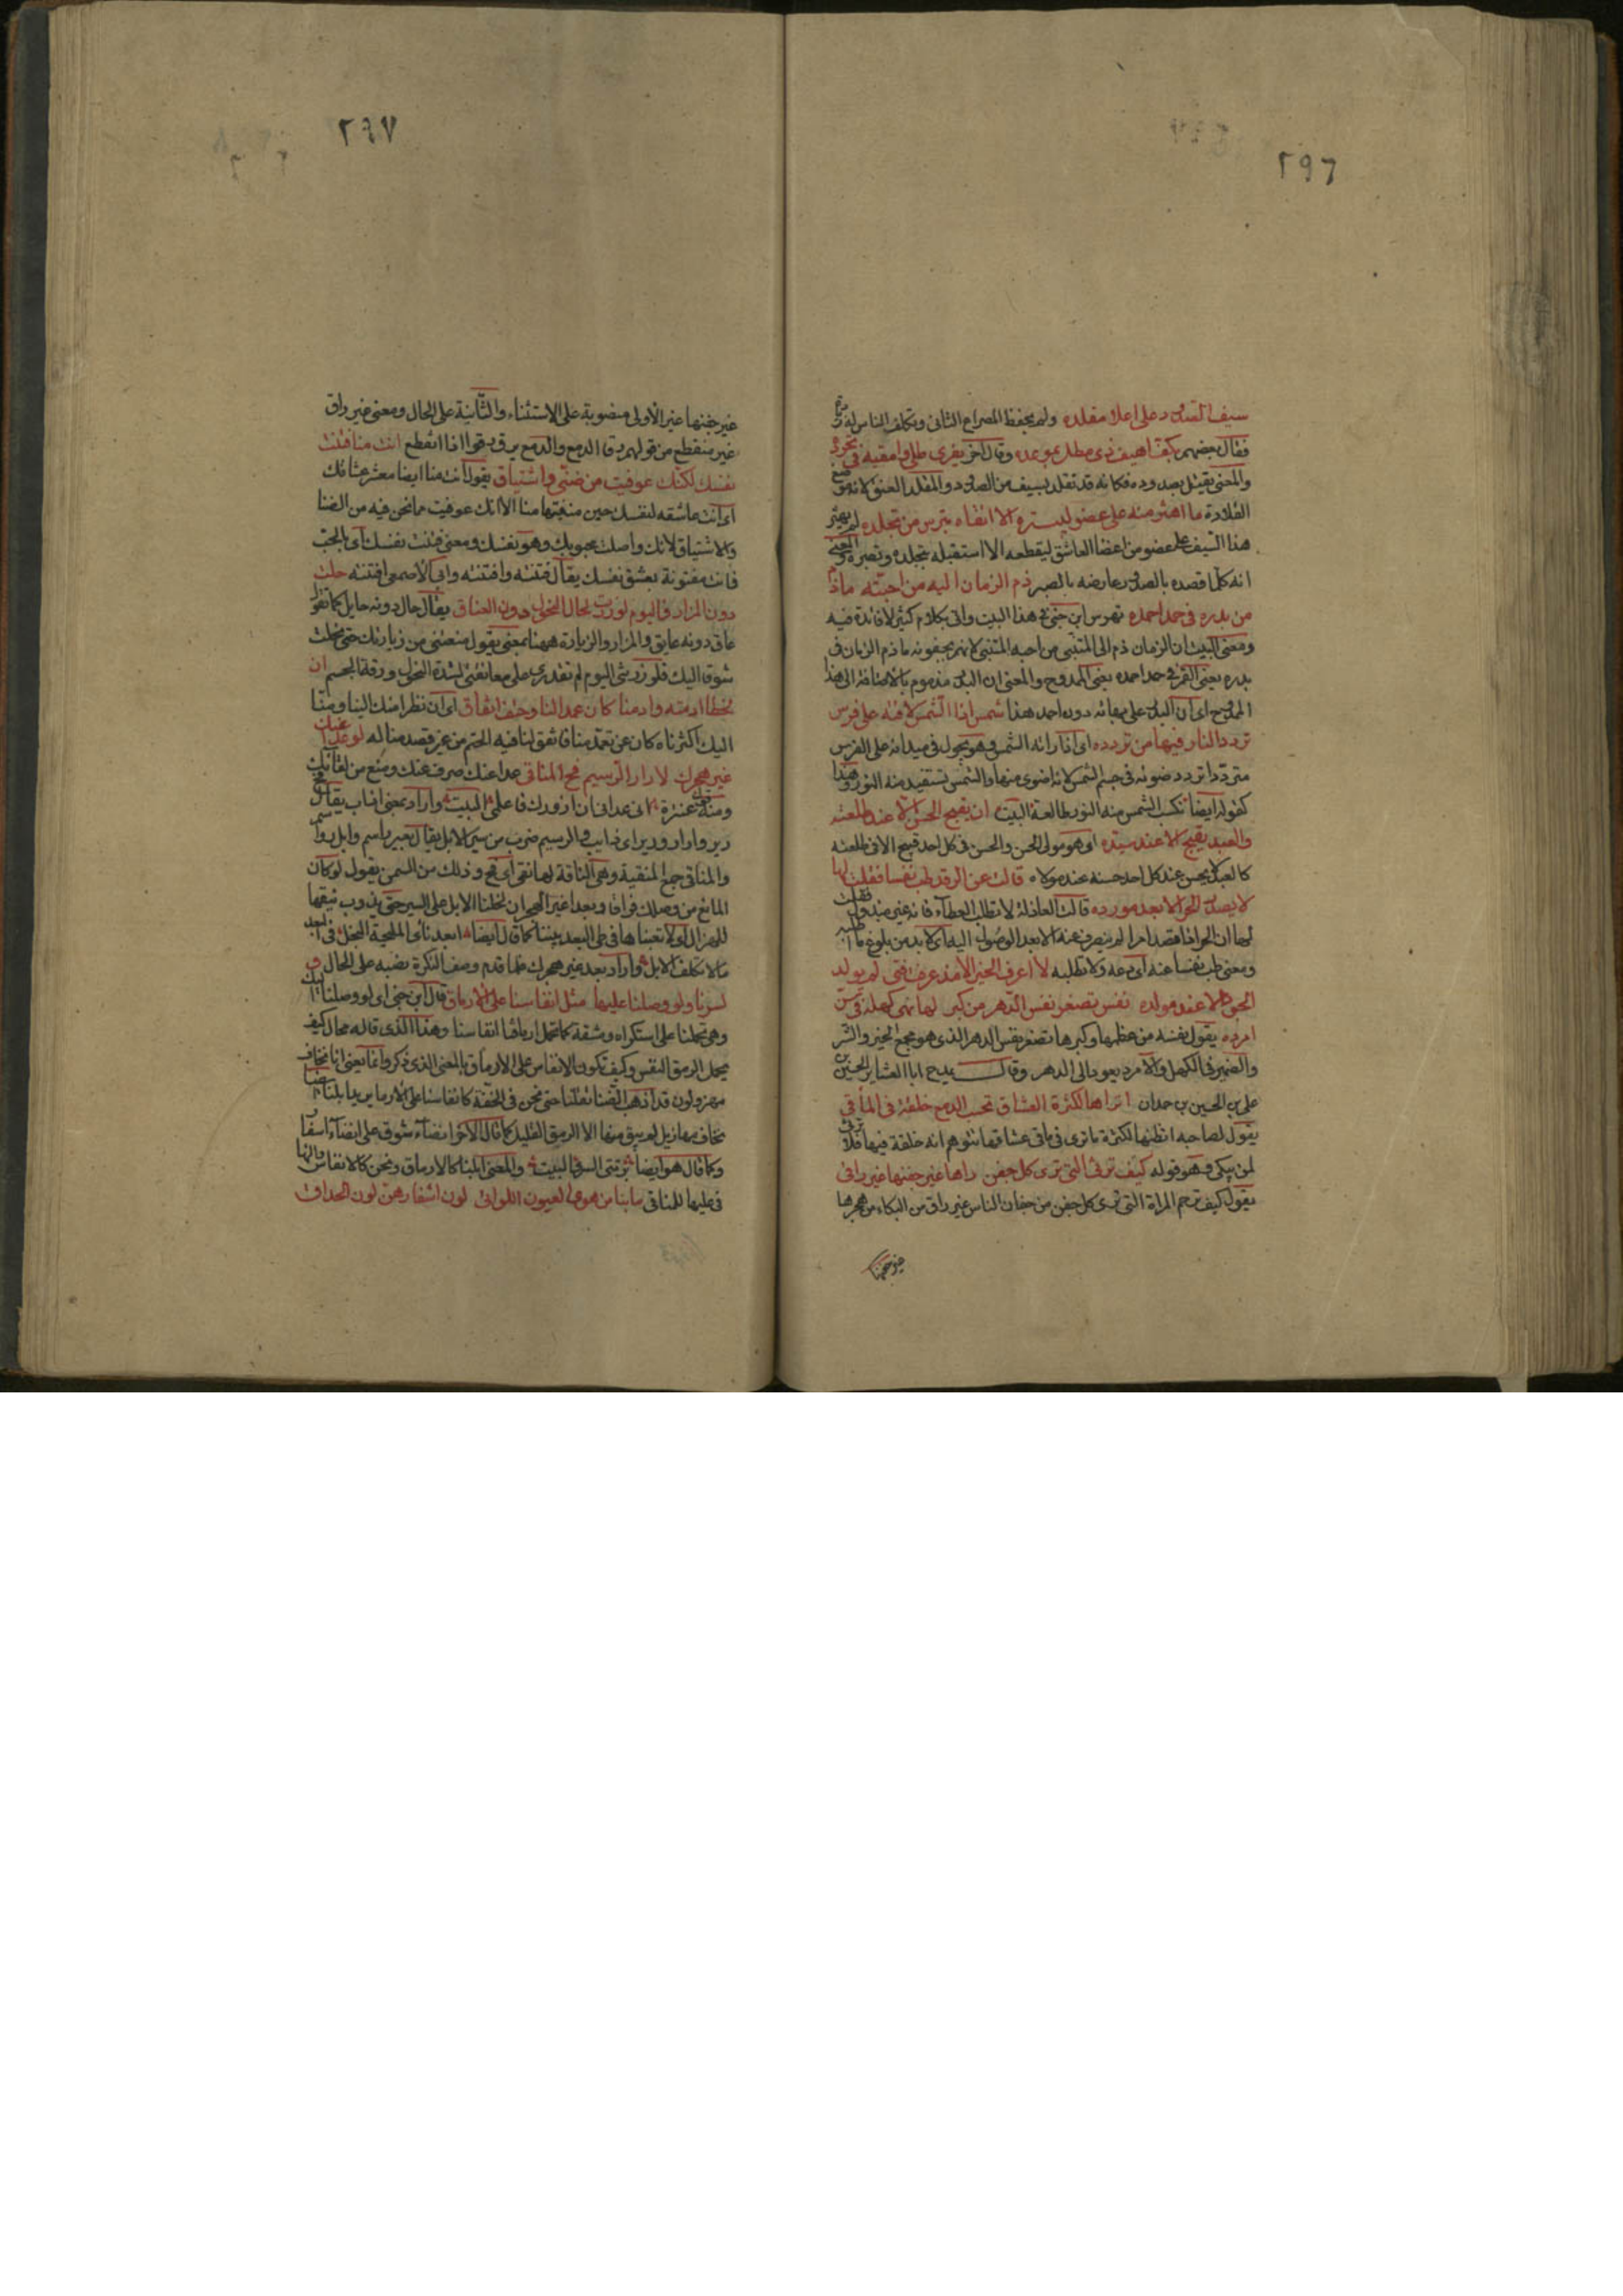 ٢٩٦
سيف الصدود على اعلا مقلده ولم يحفظ المصراع الثانى وتكلف الناس له
فقال بعضهم بكف اهيف ذى مطل بموعده وقال اخر يفرى طلى وامقيه فى تجرده
والمعنى يقتل بصدوده فكانه قد تقلد بسيف من الصدود والمقلد العنق لانه موضع
القلادة ما اهتز منه على عضو ليبتره الا اتقاه بترس من تجلده لم يهتز
هذا السيف على عضو من اعضا العاشق ليقطعه الا استقبله بتجلده وتصبره والمعنى
انه كلما قصده بالصد عارضه بالصبر ذم الزمان اليه من احبته ماذم
من بدره فى حمد احمده تهوس ابن جنى فى هذا البيت واتى بكلام كثير لا فائدة فيه
ومعنى البيت ان الزمان ذم الى المتنبى من احبه المتنبى لانهم يجفونه ماذم الزمان فى
بدره يعنى القمر فى حمد احمده يعنى الممدوح والمعنى ان البدر مذموم بالاضافة الى هذا
الممدوح اى ان البدر على بهائه دون احمد هذا شمس اذا الشمس لاقته على فرس
تردد النار فيها من تردده اى اذا راته الشمس وهو يجول فى ميدانه على الفرس
مترددا تردد ضوئه فى جسم الشمس لانه اضوى منها والشمس تستفيد منه النور وهذا
كقوله ايضا تكسب الشمس منه النور طالعة البيت ان يقبح الحسن الا عند طلعته
والعبد يقبح الا عند سيده اى هو مولى الحسن والحسن فى كل احد قبيح الا فى طلعته
كالعبد لا يحسن عند كل احد حسنه عند مولاه قالت عن الرفد طب نفسا فقلت لها
لا يصدر الحر الا بعد مورده قالت العاذلة لا تطلب العطاء فانه غير مبذول فقلت
لها ان الحر اذا قصد امرا لم ينصرف عنه الا بعد الوصول اليه اى لا بد من بلوغ ما اطلبه
ومعنى طب نفسا عنه اى دعه ولا تطلبه لا اعرف الخير الا مذ عرفت فتى لم يولد
الجود الا عند مولده نفس تصغر نفس الدهر من كبر لها نهى كهله فى سن
امرده يقول نفسه من عظمها وكبرها تصغر نفس الدهر الذى هو مجمع الخير والشر
والضمير فى الكهل والامرد يعود الى الدهر وقال يمدح ابا العشاير الحسين بن
على بن الحسين بن حمدان اتراها لكثرة العشاق تحسب الدمع خلقة فى الماقى
يقول لصاحبه اتظنها لكثرة ما ترى فى ماقى عشاقها تتوهم انه خلقة فيها فلا ترثى
لمن يبكى وهو قوله كيف ترثى التى ترى كل جفن راها غير جفنها غير راقى
يقول كيف ترحم المراة التى ترى كل جفن من جفان الناس غير راق من البكاء من هجرها
غير جفنها
٢٩٧
غير جفنها غير الاولى منصوبة على الاستثناء والثانية على الحال ومعنى غير راق
غير منقطع من قولهم رقا الدمع والدمع يرقى رقوا اذا انقطع انت منا فتنت
نفسك لكنك عوفيت من ضنى واشتياق يقول انت منا ايضا معشر عشاقك
اى انت عاشقه لنفسك حين منعتها منا الا انك عوفيت مما نحن فيه من الضنا
والاشتياق لانك واصلت محبوبك وهو نفسك ومعنى فتنت نفسك اى بالحب
فانت مفتونة بعشق نفسك يقال فتنته وافتنته وابى الاصمعى افتنته حلت
دون المزار فاليوم لو زرت لحال النحول دون العناق يقال حال دونه حايل كما تقول
عاق دونه عايق والمزار والزيارة ههنا بمعنى يقول منعتنى من زيارتك حتى نحلت
شوقا اليك فلو زرتنى اليوم لم تقدرى على معانقتى لشدة النحول ورقة الجسم ان
لحظا ادمته وادمنا كان عمدا لنا وحتف اتفاق اى ان نظرا منك الينا ومنا
اليك اكثرناه كان عن تعمد منا فاتفق لنا فيه الحتم من غير قصد منا له لو عدا عنك
غير هجرك لارار الرسيم مخ المناقى عدا عنك صرف عنك ومنع من لقائك
ومنه قول عنترة انى عدانى ان ازورك فاعلمى البيت وارار بمعنى اذاب يقال
رير وارار ورير اى ذايب والرسيم ضرب من سير الابل يقال بعير راسم وابل رواسم
والمناقى جمع المنقية وهى الناقة لها نقى اى مخ وذلك من السمن يقول لو كان
المانع من وصلك فراقا وبعدا غير الهجران لحملنا الابل على السير حتى يذوب نقيها
للهزال اى لاتعبناها فى طى البعد بيننا كما قال ايضا ابعد ناى المليحة البخل فى البعد
مالا تكلف الابل واراد بعد غير هجرك فلما قدم وصف النكرة نصبه على الحال و
لسرنا ولو وصلنا عليها مثل انفاسنا على الارماق قال ابن جنى اى لو وصلنا اليك
وهى تحملنا على استكراه ومشقة كما تحمل ارماقنا انفاسنا وهذا الذى قاله محال كيف
يحمل الرمق النفس وكيف تكون الانفاس على الارماق بالمعنى الذى ذكر وانما يعنى انا نخاف
مهزولون قد اذهب الضنا ثقلنا حتى نحن فى الخفة كانفاسنا على الارماق يريد ابلنا ايضا
نخاف مهازيل لم يبق منها الا الرمق القليل كما قال الاخر انضاء شوق على انضاء اسفار
وكما قال هو ايضا برتنى السرى البيت والمعنى ابلنا كالارماق ونحن كالانفاس والهاء
فى عليها للمناقى ما بنا من هوى العيون اللواتى لون اشفارهن لون الحداق